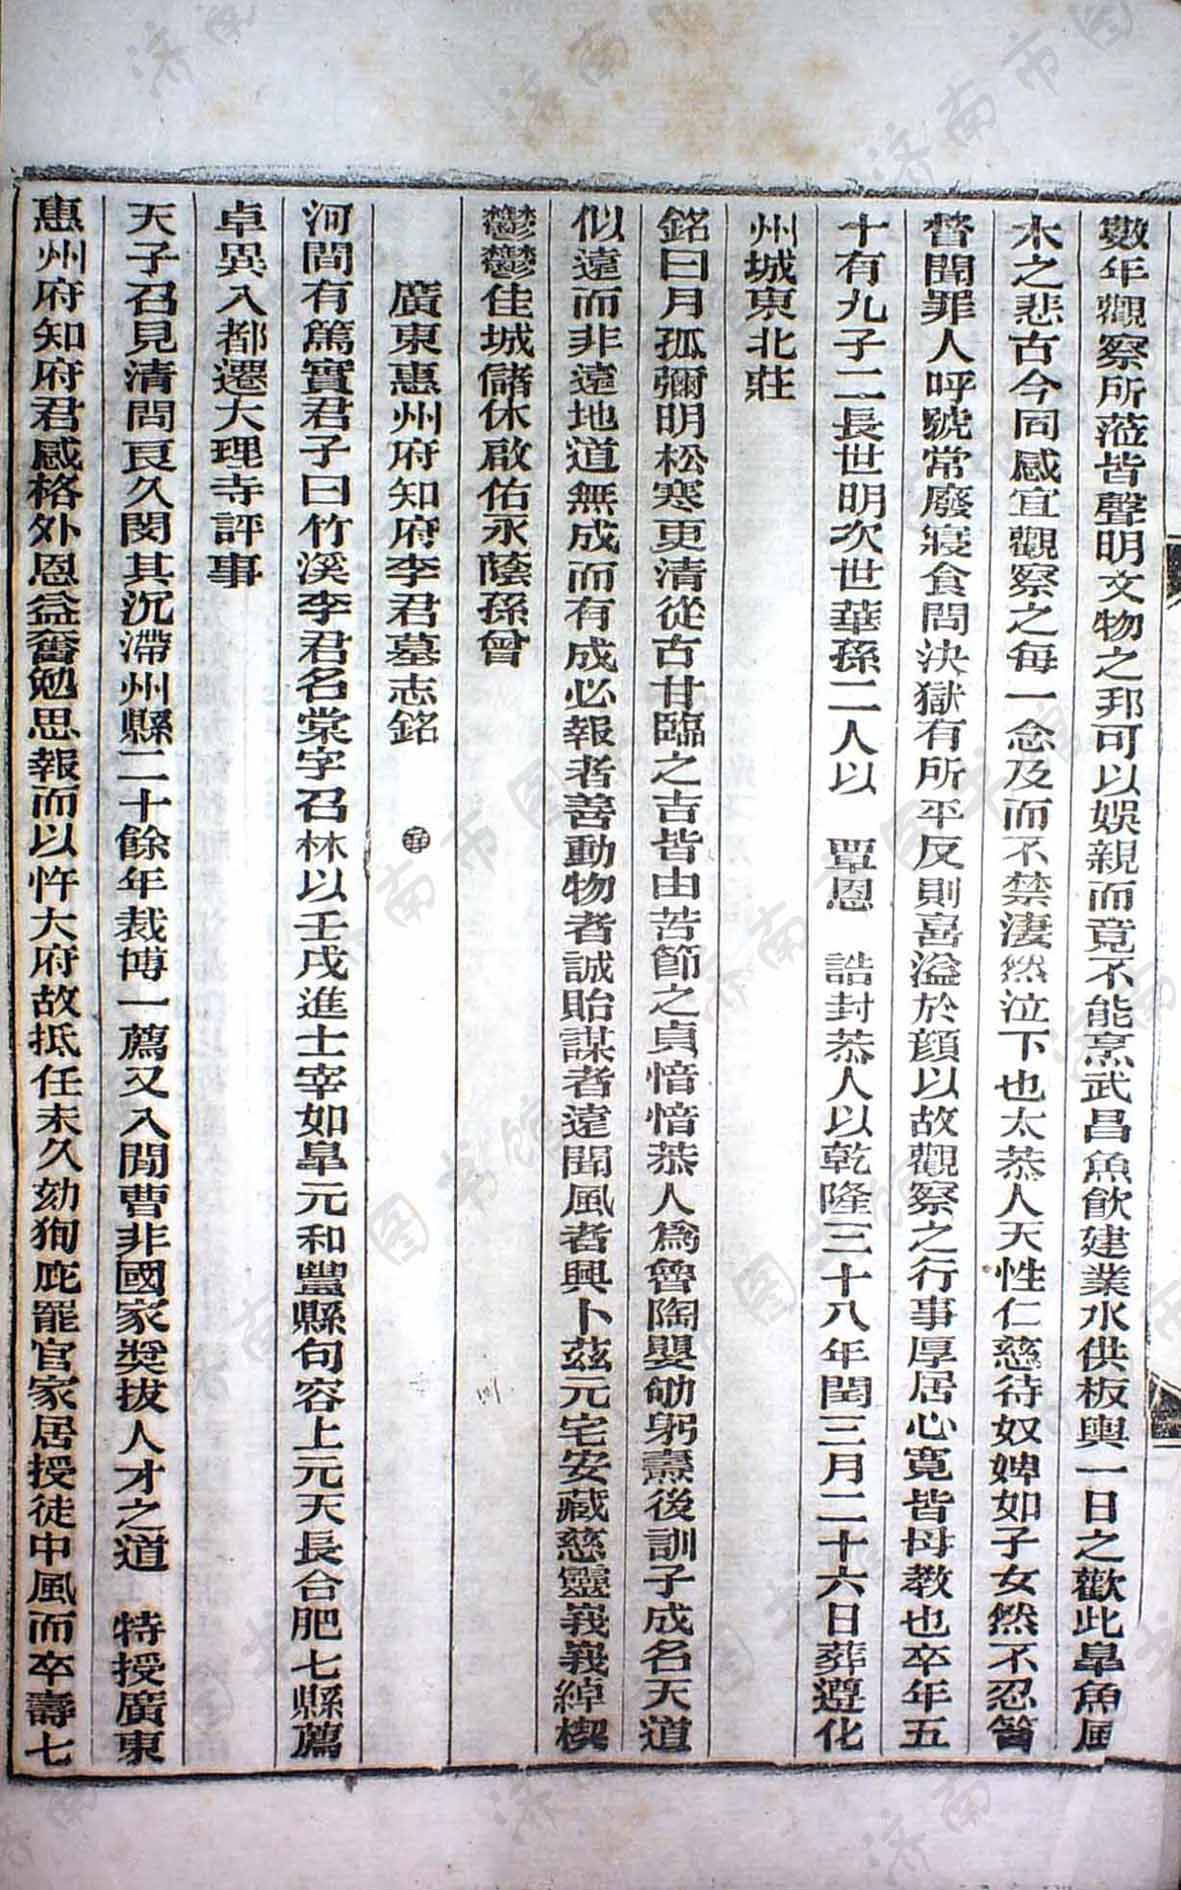 數年觀察所蒞皆聲明文物之邦可以娛親而竟不能烹武昌魚飮建業水供板輿一日之歡此臯魚風
木之悲古今同感宜觀察之每一念及而不禁淒然泣下也太恭人天性仁慈待奴婢如子女然不忍笞
督聞罪人呼號常廢寢食問決獄有所平反則喜溢於顏以故觀察之行事厚居心寬皆母教也卒年五
十有九子二長世明次世華孫二人以　覃恩　誥封恭人以乾隆三十八年閏三月二十六日葬遵化
州城東北莊
銘曰月孤彌明松寒更清從古甘臨之吉皆由苦節之貞愔愔恭人爲魯陶嬰劬躬燾後訓子成名天道
似遠而非遠地道無成而有成必報者善動物者誠貽謀者遠聞風者興卜茲元宅安藏慈靈峩峩綽楔
鬱鬱佳城儲休啟佑永蔭孫曾
廣東惠州府知府李君墓志銘
河間有篤實君子曰竹溪李君名棠字召林以壬戌進士宰如臯元和豐縣句容上元天長合肥七縣薦
卓異入都遷大理寺評事
天子召見清問良久閔其沉滯州縣二十餘年裁博一薦又入閒曹非國家奬拔人才之道　特授廣東
惠州府知府君感格外恩益奮勉思報而以忤大府故抵任未久劾狥庇罷官家居授徒中風而卒壽七
济南市图书馆